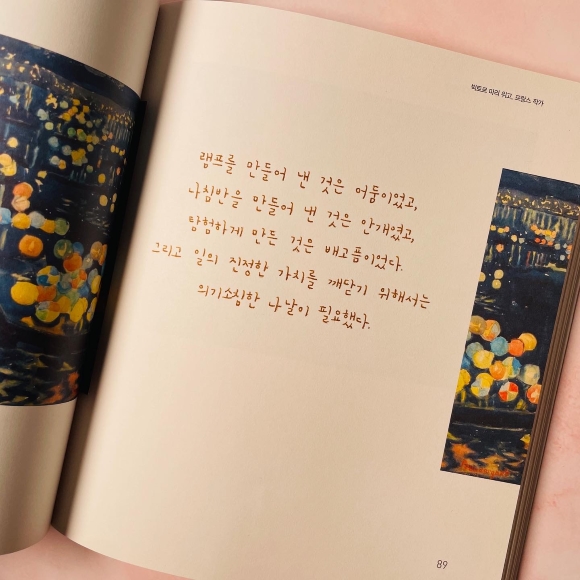 빅토르 마리 위고, 프랑스 작가
램프를 만들어 낸 것은 어둠이었고,
나침반을 만들어 낸 것은 안개였고,
탐험하게 만든 것은 배고픔이었다.
그리고 일의 진정한 가치를 깨닫기 위해서는
위기소침한 나날이 필요했다.
89